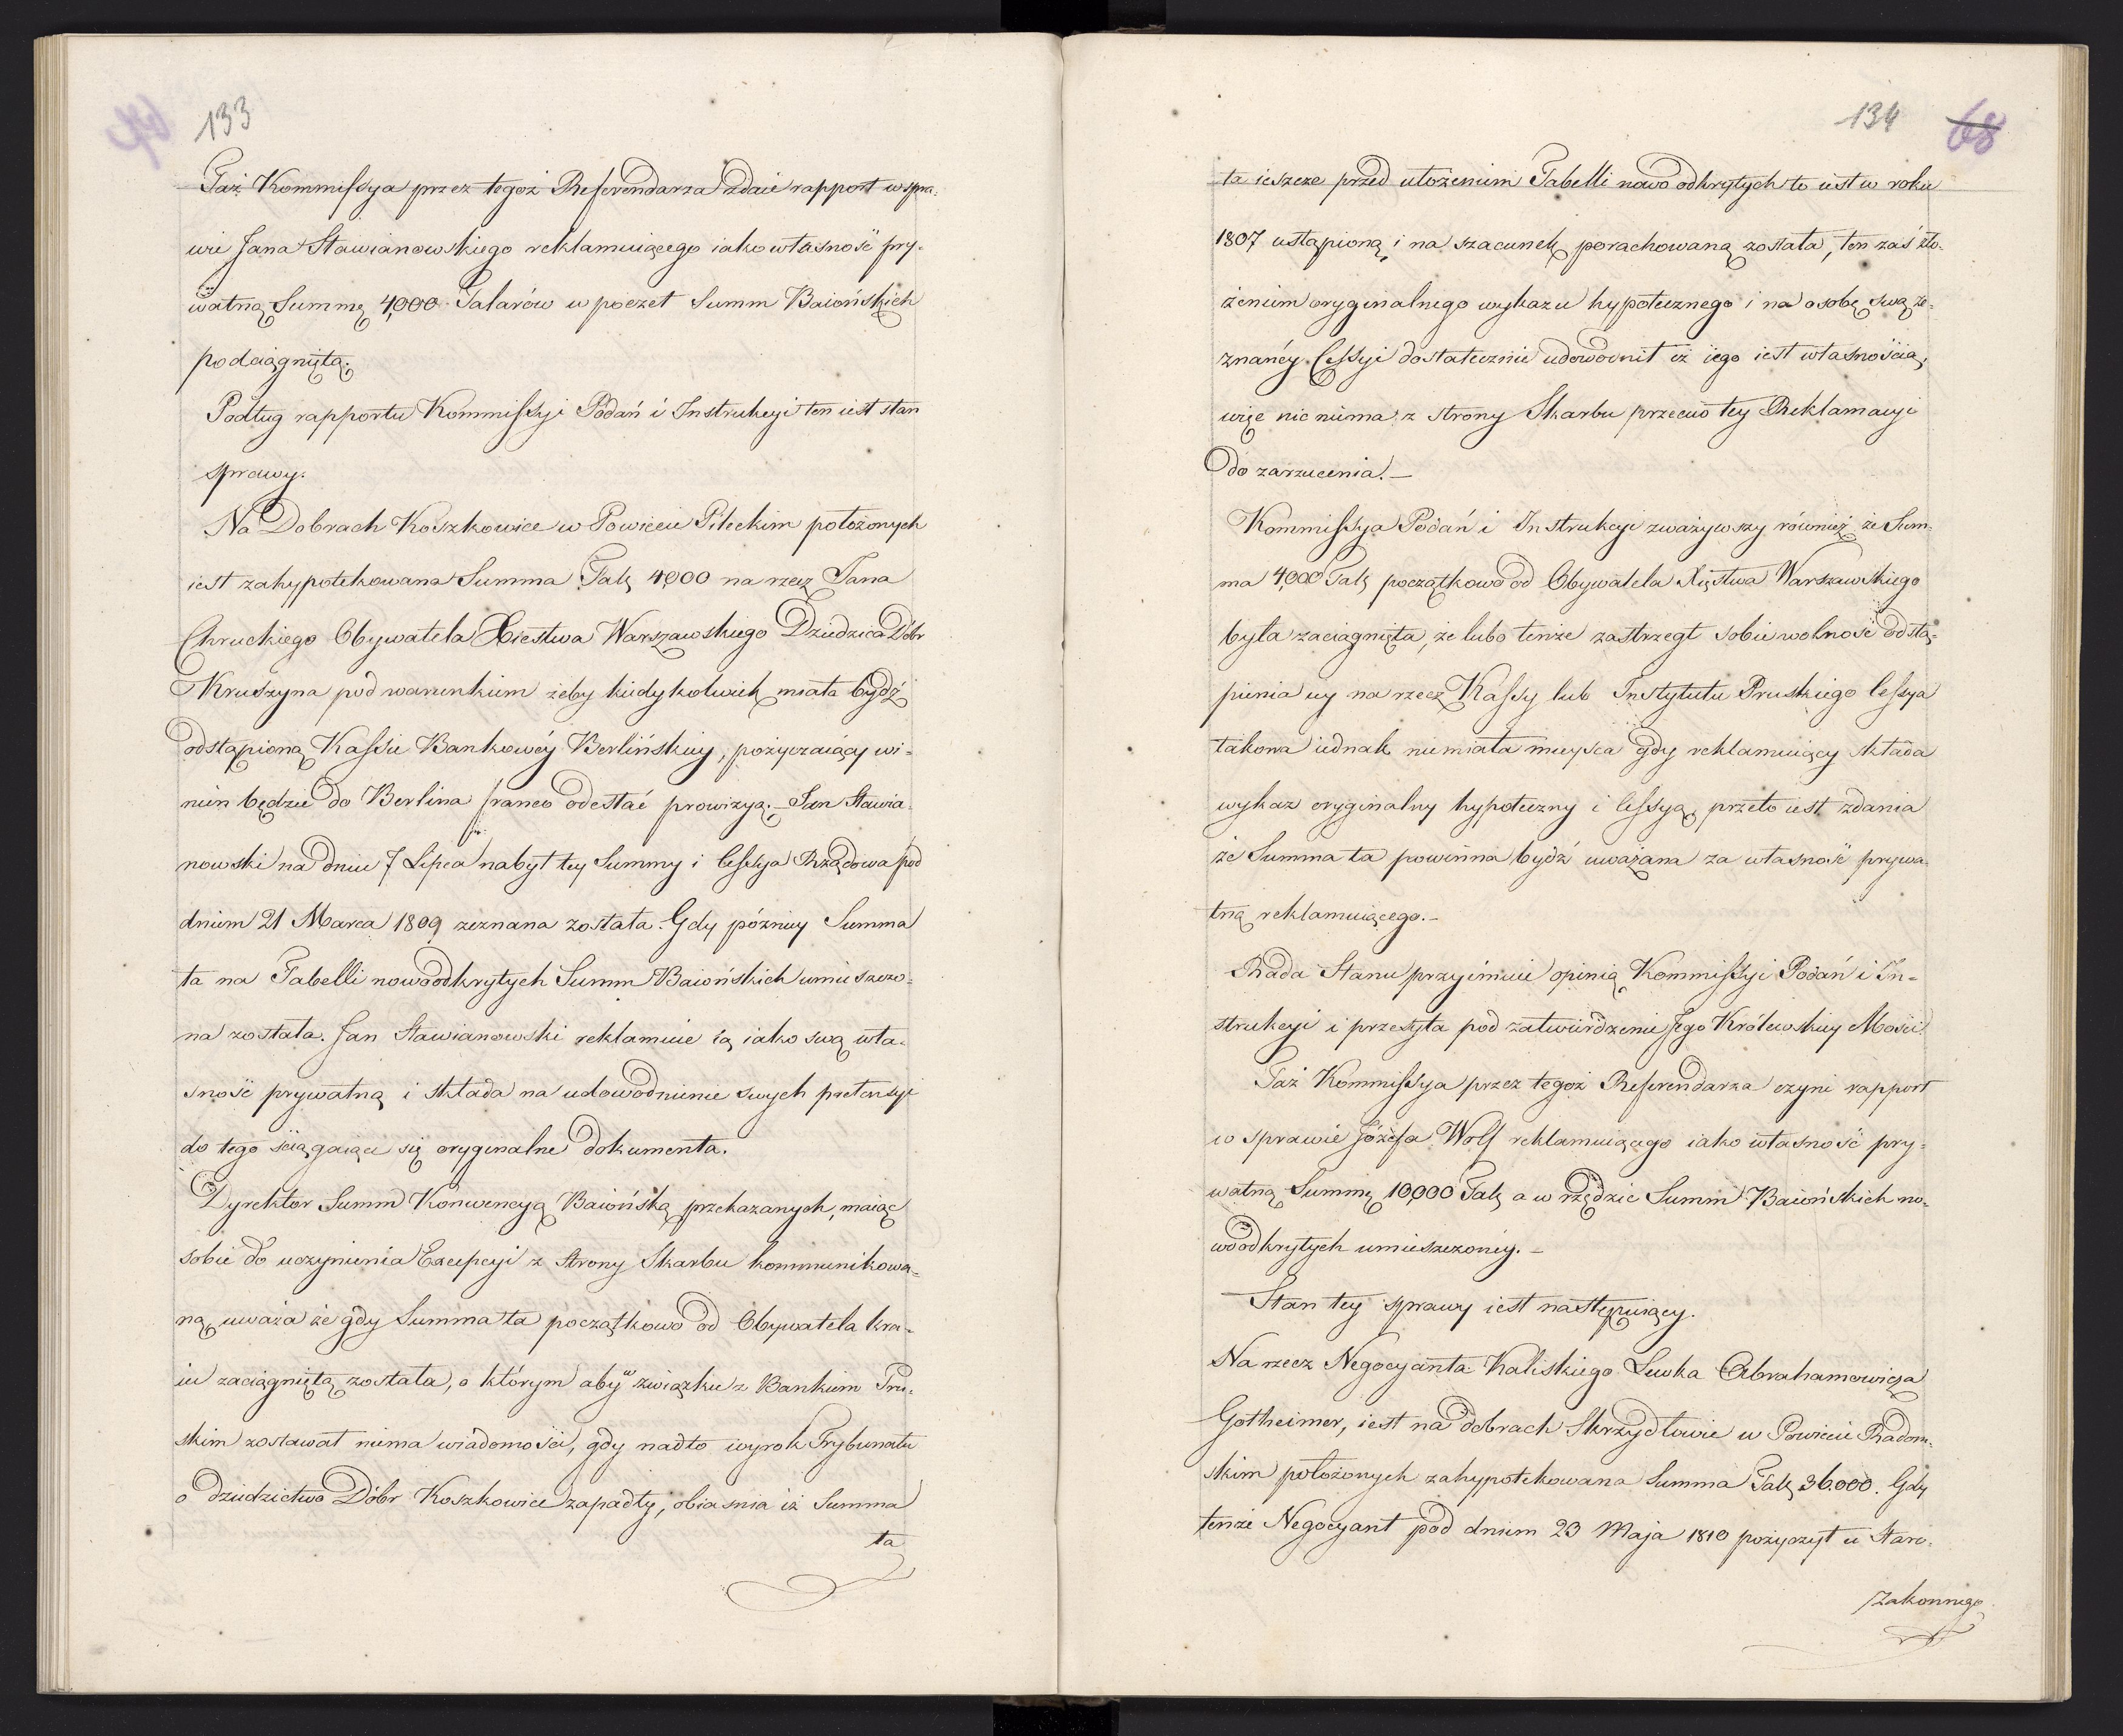 133
Taż Kommissya przez tegoż Referendarza zdaie rapport w spra-
wie Jana Stawianowskiego reklamuiącego iako własność pry-
watną Summę 4,000 Talarów w poczet Summ Baiońskich
podciągniętą.
Podług rapportu Kommissyi Podań i Instrukcyi ten iest stan
sprawy.
Na Dobrach Koszkowice w Powiecie Pileckim położonych
iest zahypotekowana Summa Tal. 4000 na rzecz Jana
Chruckiego Obywatela Xiestwa Warszawskiego Dziedzica Dóbr
Kruszyna pod warunkiem żeby kiedykolwiek miała bydź
odstąpioną Kassie Bankowéy Berlińskiey, pożyczaiący wi-
nien będzie do Berlina franco odestać prowizyą. Jan Stawia-
nowski na dniu 7 Lipca nabył tey Summy i Cessya Rządowa pod
dniem 21 Marca 1809 zeznana została. Gdy pózniey Summa
ta na Tabelli nowoodkrytych Summ Baiońskich umieszczo-
na została. Jan Stawianowski reklamuie ią iako swą wła-
sność prywatną i składa na udowodnienie swych pretensyi
do tego ściągaiące się oryginalne dokumenta.
Dyrektor Summ Konwencyą Baiońską przekazanych, maiąc
sobie do uczynienia Excepcyi z strony Skarbu kommunikowa-
ną, uważa że gdy Summa ta początkowo od Obywatela kra-
iu zaciągniętą została, o którym aby w związku z Bankiem Pru-
skim zostawał niema wiadomości, gdy nadto wyrok Trybunału
o dziedzictwo Dóbr Koszkowice zapadły, obiasnia iż Summa
ta
134 68
ta ieszcze przed ułożeniem Tabelli nowo odkrytych to iest w roku
1807 ustąpioną i na szacunek porachowaną została, ten zaś zło-
żeniem oryginalnego wykazu hypotecznego i na osobę swą ze-
znanéy Cessyi dostatecznie udowodnił iż iego iest własnością,
więc nic niema z strony Skarbu przeciwo tey Reklamacyi
do zarzucenia.
Kommissya Podań i Instrukcyi zważywszy również że Sum-
ma 4,000 Tal. początkowo od Obywatela Xięstwa Warszawskiego
była zaciągnięta, że lubo tenże zastrzegł sobie wolność odstą-
pienia iey na rzecz Kassy lub Instytutu Pruskiego Cessya
takowa iednak niemiała mieysca gdy reklamuiący składa
wykaz oryginalny hypoteczny i Cessyą, przeto iest zdania
że Summa ta powinna bydź uważana za własność prywa-
tną reklamuiącego.
Rada Stanu przyimuie opinią Kommissyi Podań i In-
strukcyi i przesyła pod zatwierdzenie Jego Królewskiey Mości.
Taż Kommissya przez tegoż Referendarza czyni rapport
w sprawie Józefa Wolf reklamuiącego iako własność pry-
watną Summę 10,000 Tal. a w rzędzie Summ Baiońskich no-
wo odkrytych umieszczoney.
Stan tey sprawy iest następuiący.
Na rzecz Negocyanta Kaliskiego Lewka Abrahamowicza
Gotheimer, iest na dobrach Skrzydlowie w Powiecie Radom-
skim położonych zahypotekowana Summa Tal. 36.000. Gdy
tenże Negocyant pod dniem 23 Maja 1810 pożyczył u Staro-
zakonnego